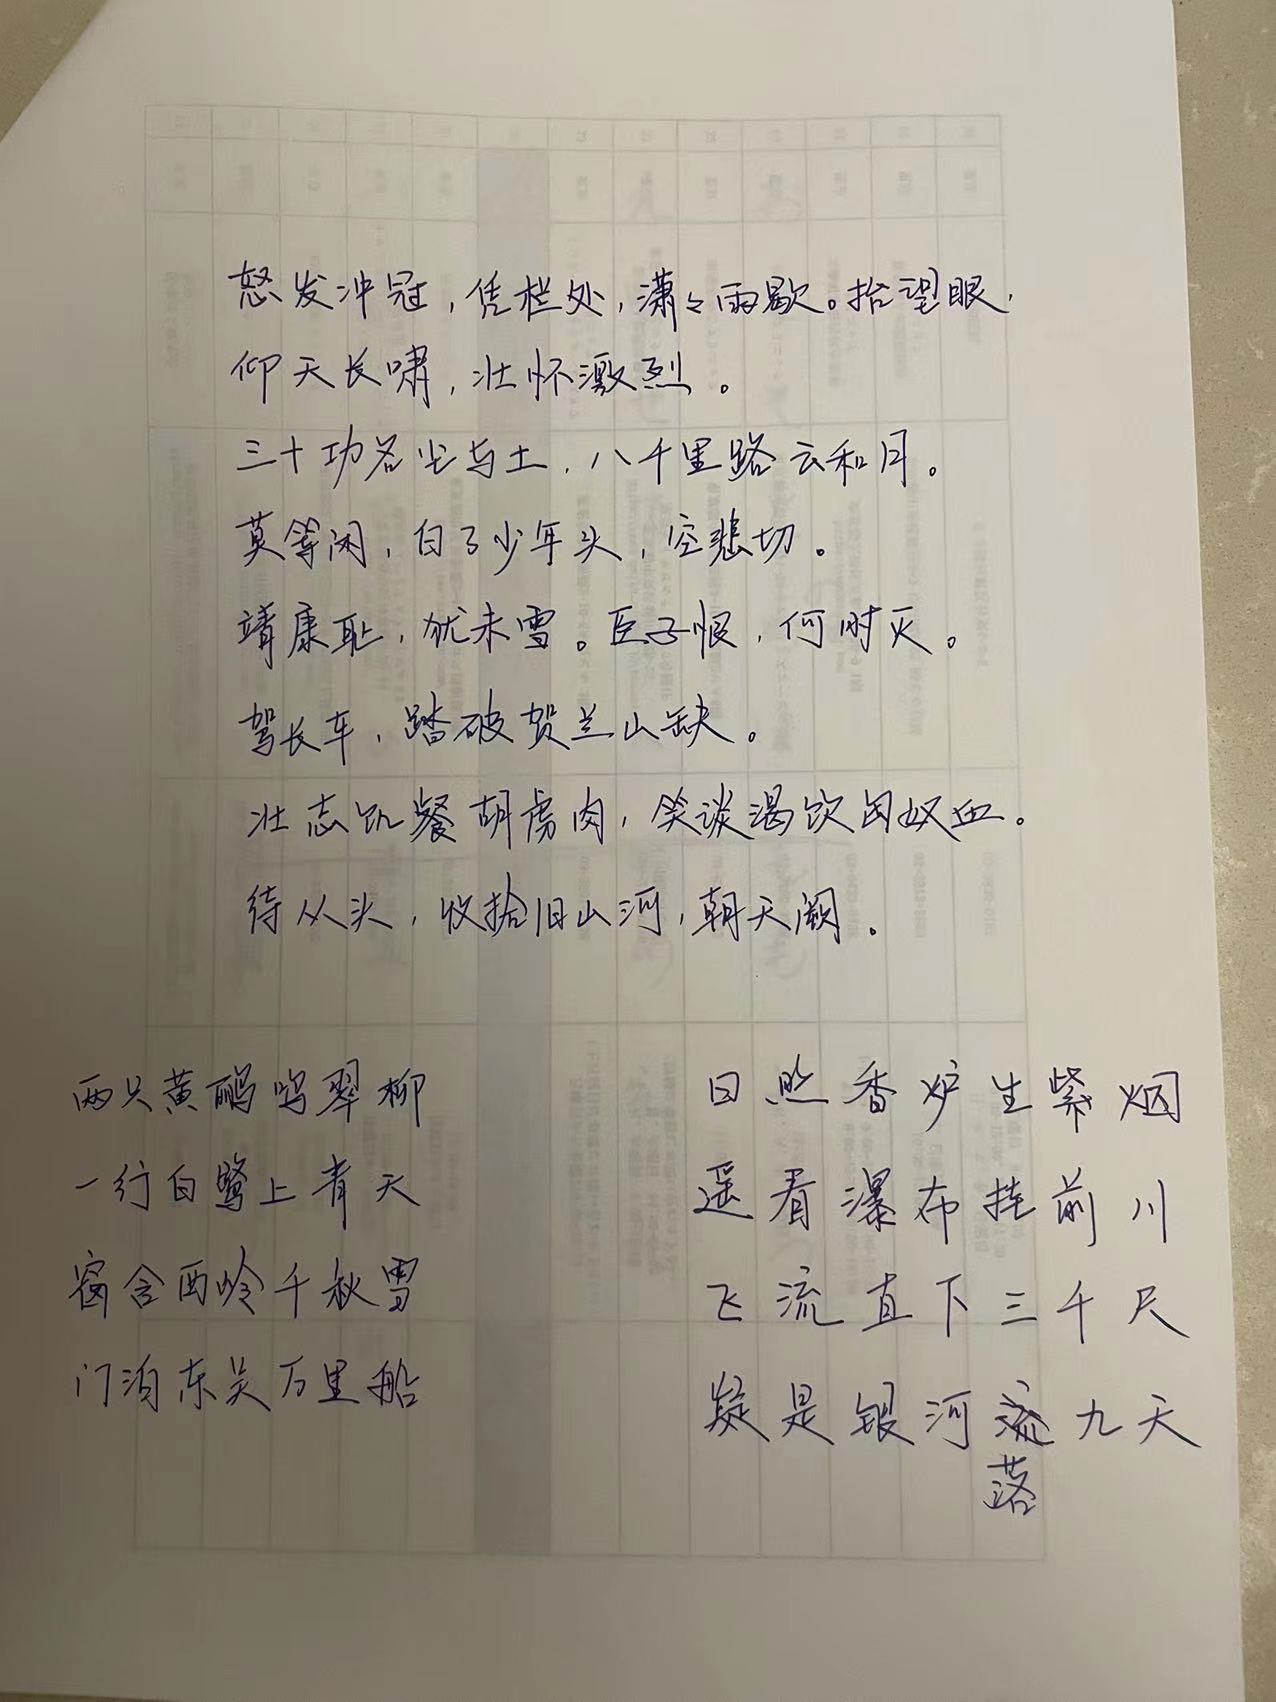 怒发冲冠，凭栏处，潇々雨歇。抬望眼，
仰天长啸，壮怀激烈。
三十功名尘与土，八千里路云和月。
莫等闲，白了少年头，空悲切。
靖康耻，犹未雪。臣子恨，何时灭。
驾长车，踏破贺兰山缺。
壮志饥餐胡虏肉，笑谈渴饮匈奴血。
待从头，收拾旧山河，朝天阙。
两只黄鹂鸣翠柳
一行白鹭上青天
窗含西岭千秋雪
门泊东吴万里船
日照香炉生紫烟
遥看瀑布挂前川
飞流直下三千尺
疑是银河流九天
落